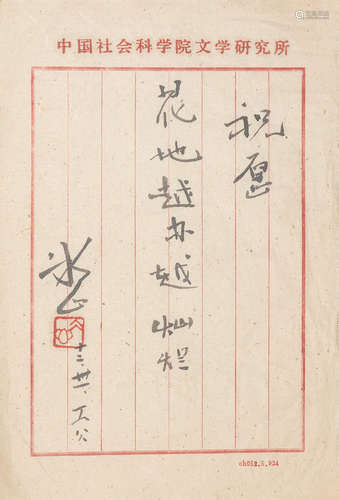 中国社会科学院文学研究所
祝愿
花地越办越灿烂
冰心
十二、卅一、